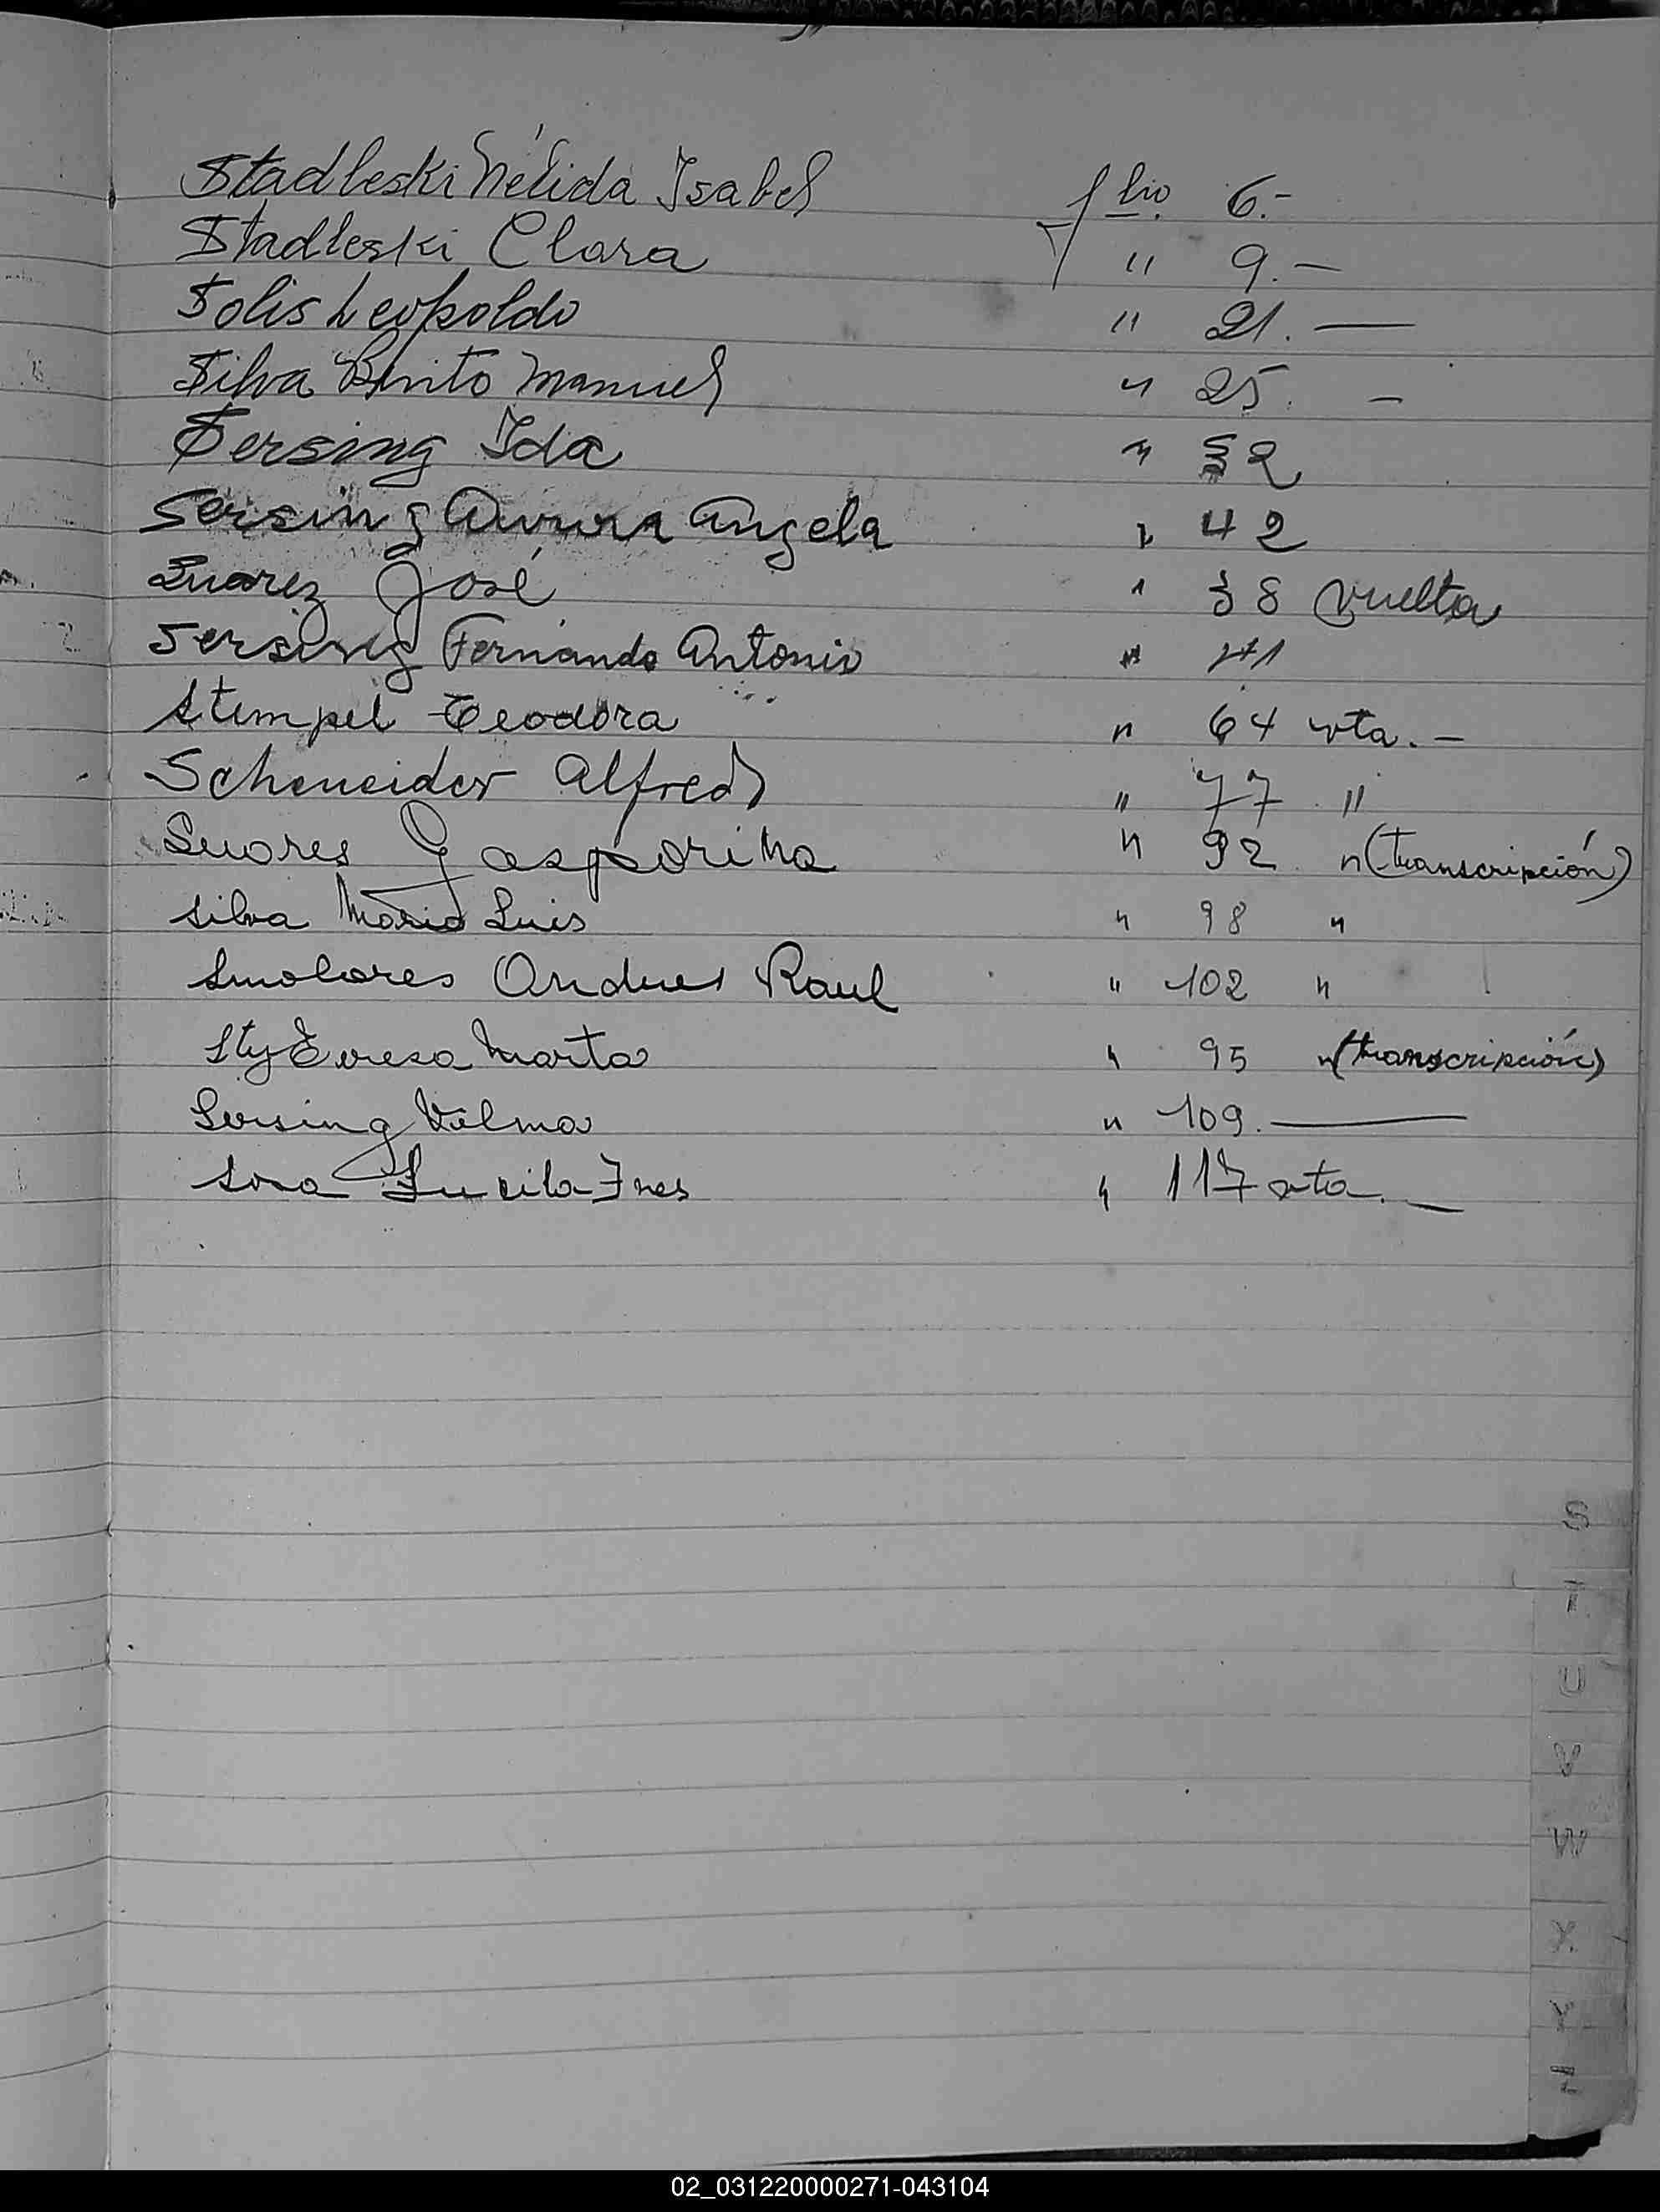 Stadleski Nélida Isabel folio 6.-
Stadleski Clara " 9.—
Solis Leopoldo " 21.—
Silva Benito Manuel " 25. —
Sersing Ida " 32
Sersing Aurora Angela " 42
Suarez José " 38 vuelta
Sersing Fernando Antonio " 41
Stempel Teodora " 64 vta.—
Scheneider Alfredo " 77 "
Suores Gasparina " 92 " (transcripción)
Silva Mario Luis " 98 "
Smolares Andres Raul " 102 "
Sty Teresa Marta " 95 " (transcripción)
Sersing Vilma " 109.—
Sosa Lucila Ines " 117 vta.—
S
T
U
V
W
X
Y
Z
02_031220000271-043104